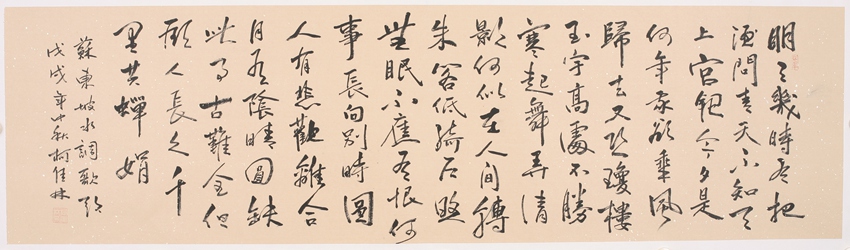 明月幾時有把
酒問青天不知天
上宮闕今夕是
何年我欲乘風
歸去又恐瓊樓
玉宇高處不勝
寒起舞弄清
影何似在人間轉
朱閣低綺戶照
無眠不應有恨何
事長向別時圓
人有悲歡離合
月有陰晴圓缺
此事古難全但
願人長久千
里共嬋娟
蘇東坡水調歌頭
戊戌年仲秋柯佳林